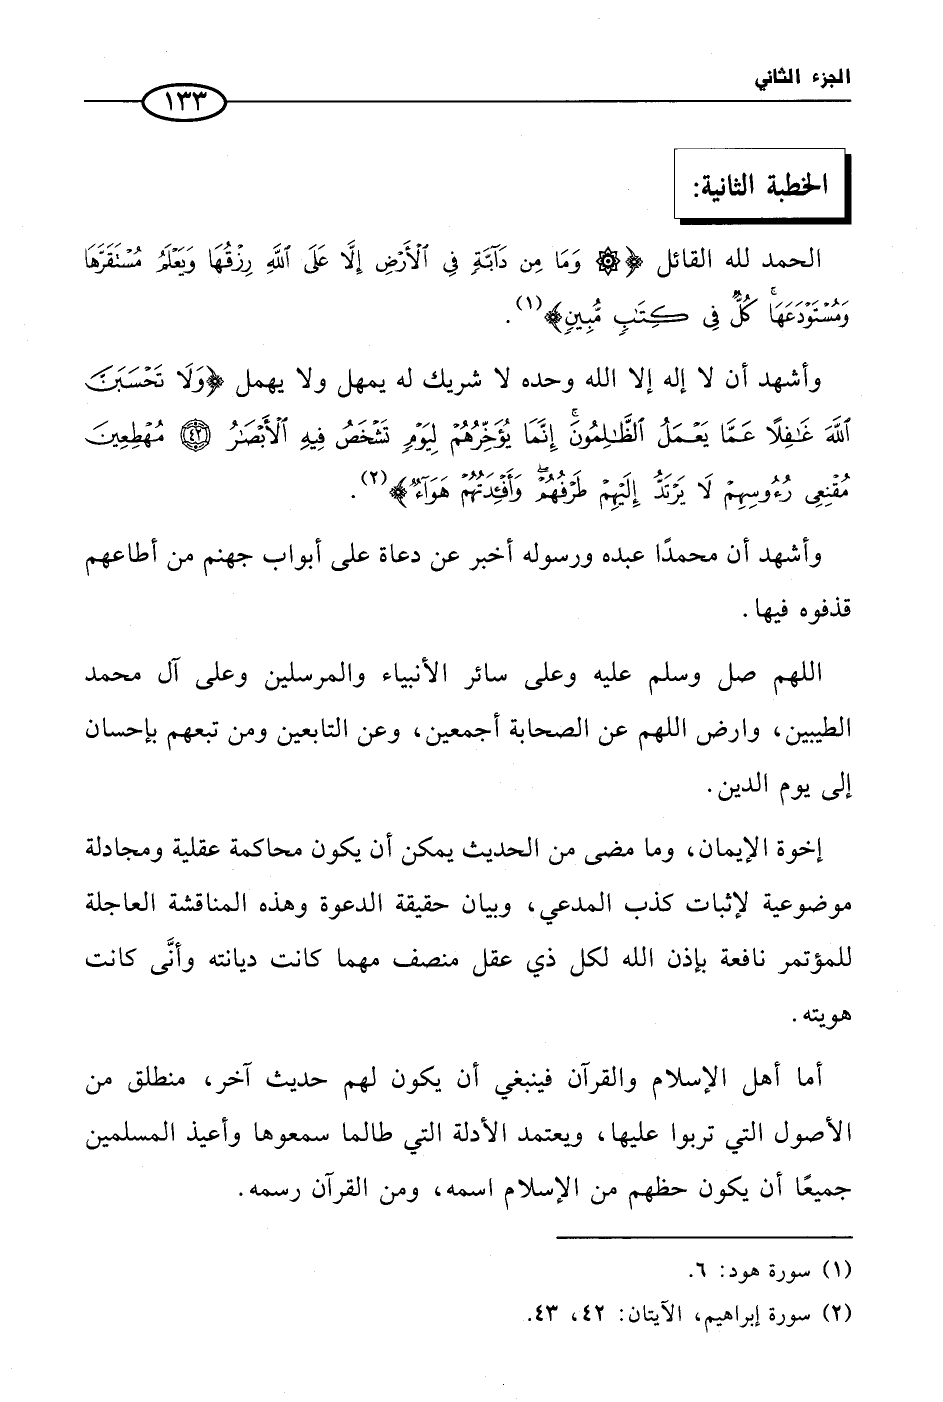 الجزء الثاني
١٣٣
الخطبة الثانية:
الحمد لله القائل ﴿۞ وَمَا مِن دَآبَّةٍ فِي ٱلْأَرْضِ إِلَّا عَلَى ٱللَّهِ رِزْقُهَا وَيَعْلَمُ مُسْتَقَرَّهَا
وَمُسْتَوْدَعَهَا ۚ كُلٌّ فِي كِتَٰبٍ مُّبِينٍ﴾(١).
وأشهد أن لا إله إلا الله وحده لا شريك له يمهل ولا يهمل ﴿وَلَا تَحْسَبَنَّ
ٱللَّهَ غَٰفِلًا عَمَّا يَعْمَلُ ٱلظَّٰلِمُونَ ۚ إِنَّمَا يُؤَخِّرُهُمْ لِيَوْمٍ تَشْخَصُ فِيهِ ٱلْأَبْصَٰرُ ﴿٤٢﴾ مُهْطِعِينَ
مُقْنِعِي رُءُوسِهِمْ لَا يَرْتَدُّ إِلَيْهِمْ طَرْفُهُمْ ۖ وَأَفْـِٔدَتُهُمْ هَوَآءٌ﴾(٢).
وأشهد أن محمدًا عبده ورسوله أخبر عن دعاة على أبواب جهنم من أطاعهم
قذفوه فيها.
اللهم صل وسلم عليه وعلى سائر الأنبياء والمرسلين وعلى آل محمد
الطيبين، وارض اللهم عن الصحابة أجمعين، وعن التابعين ومن تبعهم بإحسان
إلى يوم الدين.
إخوة الإيمان، وما مضى من الحديث يمكن أن يكون محاكمة عقلية ومجادلة
موضوعية لإثبات كذب المدعي، وبيان حقيقة الدعوة وهذه المناقشة العاجلة
للمؤتمر نافعة بإذن الله لكل ذي عقل منصف مهما كانت ديانته وأنَّى كانت
هويته.
أما أهل الإسلام والقرآن فينبغي أن يكون لهم حديث آخر، منطلق من
الأصول التي تربوا عليها، ويعتمد الأدلة التي طالما سمعوها وأعيذ المسلمين
جميعًا أن يكون حظهم من الإسلام اسمه، ومن القرآن رسمه.
(١) سورة هود: ٦.
(٢) سورة إبراهيم، الآيتان: ٤٢، ٤٣.